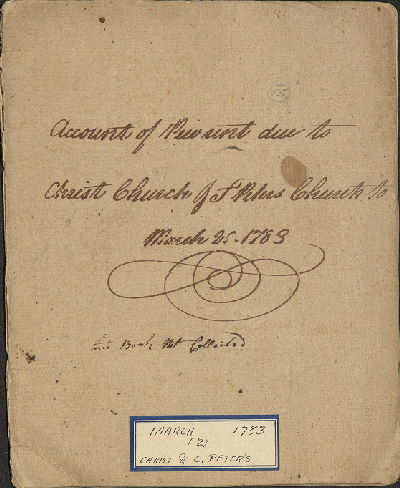 Account of Pew rent due to
Christ Church & St Peters Church to
March 25. 1783
Book Not Collected
MARCH 1783
(2)
CHRIST & C. PETERS